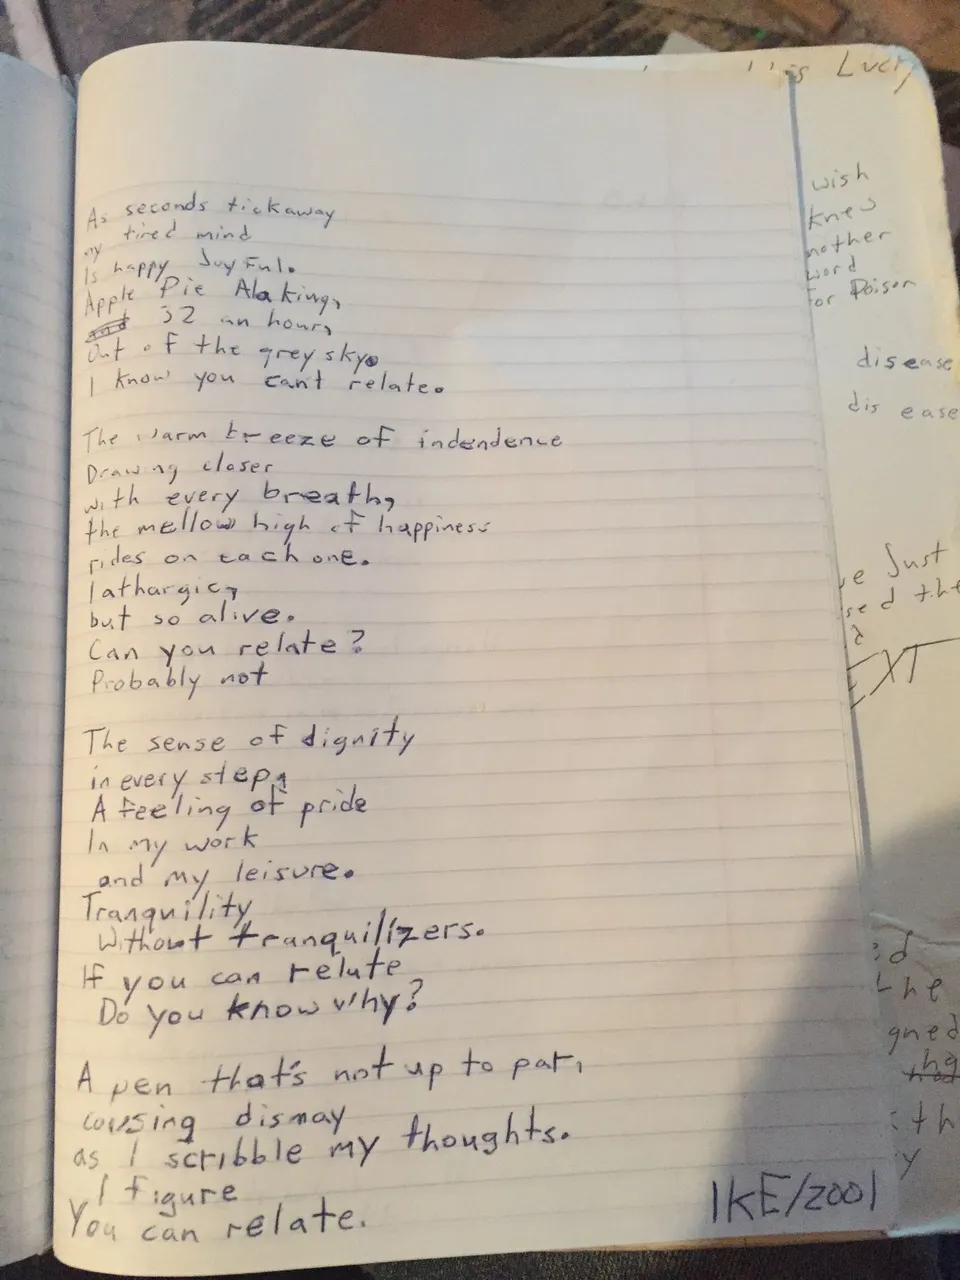 As seconds tickaway
my tired mind
Is happy Joyful.
Apple Pie Alaking,
32 an hour,
Out of the grey sky.
I know you can't relate.
The warm breeze of indendence
Drawing closer
with every breath,
the mellow high of happiness
rides on each one.
lathargic,
but so alive.
Can you relate?
Probably not
The sense of dignity
in every step,
A feeling of pride
In my work
and my leisure.
Tranquility
Without tranquilizers.
If you can relate
Do you know why?
A pen that's not up to par,
causing dismay
as I scribble my thoughts.
I figure
You can relate.
IKE/2001
is Lucy
wish
knew
nother
word
for Poison
disease
dis ease
ve Just
sed the
d
EXT
ed
the
gned
th
y